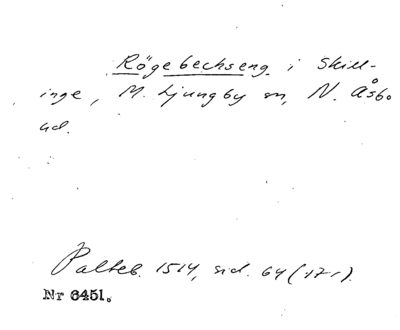 Rögebechseng i Skill-
inge, M. Ljungby sn, N. Åsbo
hd.
Palteb. 1514, sid. 64 (171).
Nr 6451.